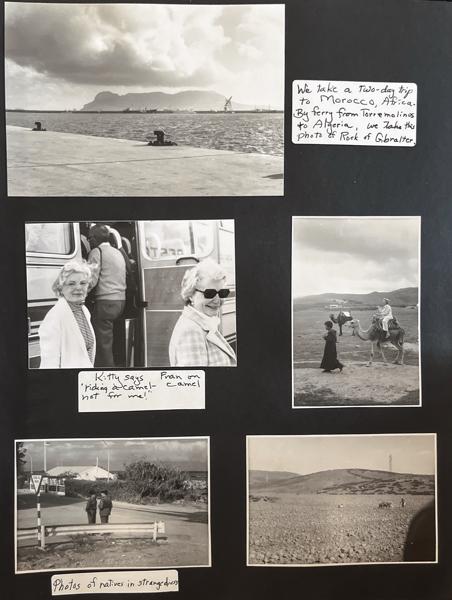 We take a two-day trip
to Morocco, Africa.
By ferry from Torremolinos
to Algeria, we take this
photo of Rock of Gibralter.
Kitty says Fran on
"riding a camel- camel
not for me!"
Photos of natives in strange dress